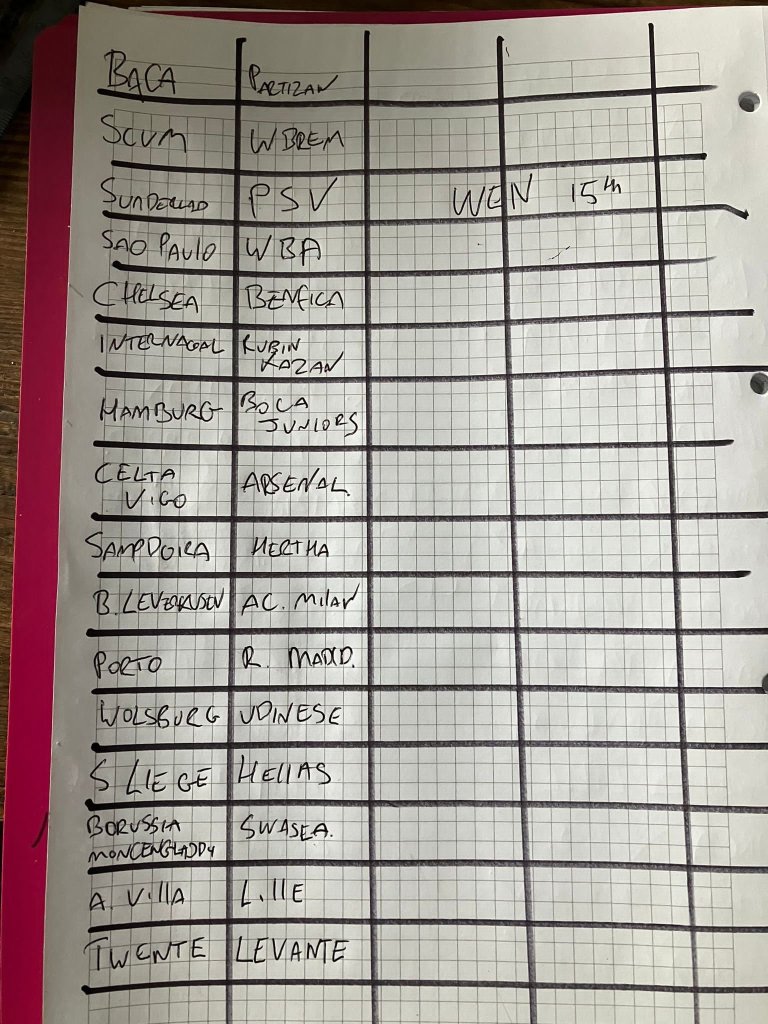 BACA PARTIZAN
SCUM WBREM
SUNDERLAD PSV WEN 15th
SAO PAULO WBA
CHELSEA BENFICA
INTERNACAL RUBIN
KAZAN
HAMBURG BOCA
JUNIORS
CELTA
VIGO ARSENAL.
SAMPDOIRA HERTHA
B. LEVERKUSEN AC. MILAN
PORTO R. MADRD.
WOLSBURG UDINESE
S LIEGE HELLAS
BORUSSIA SWASEA.
MONCENGLADDY
A. VILLA LILLE
TWENTE LEVANTE